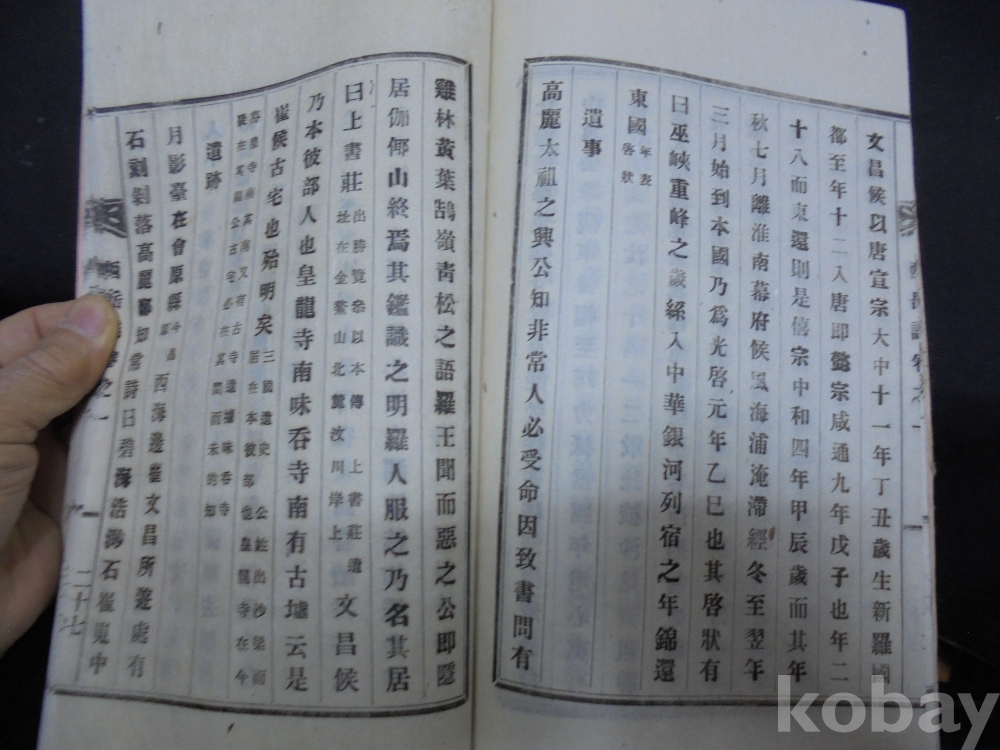 文昌侯以唐宣宗大中十一年丁丑歲生新羅國
都至年十二入唐卽懿宗咸通九年戊子也年二
十八而東還則是僖宗中和四年甲辰歲而其年
秋七月離淮南幕府候風海浦淹滯經冬至翌年
三月始到本國乃爲光啓元年乙巳也其啓狀有
曰巫峽重峰之歲絲入中華銀河列宿之年錦還
東國年表啓狀
遺事
高麗太祖之興公知非常人必受命因致書問有
雞林黃葉鵠嶺靑松之語羅王聞而惡之公卽隱
居伽倻山終焉其鑑識之明羅人服之乃名其居
曰上書莊出勝覽叅以本傳 上書莊遺址在金鰲山北麓汶川岸上文昌侯
乃本彼部人也皇龍寺南味呑寺南有古墟云是
崔侯古宅也殆明矣三國遺史 公姓出沙梁而居在本彼部也皇龍寺在今
芬皇寺南其南又有古寺遺墟味呑寺疑在其間公古宅必在其間而未的知
遺跡
月影臺在會原縣今昌原西海邊崔文昌所遊處有
石刻剝落高麗鄭知常詩曰碧海浩渺石崔嵬中
西岳誌卷之一
二十七
kobay